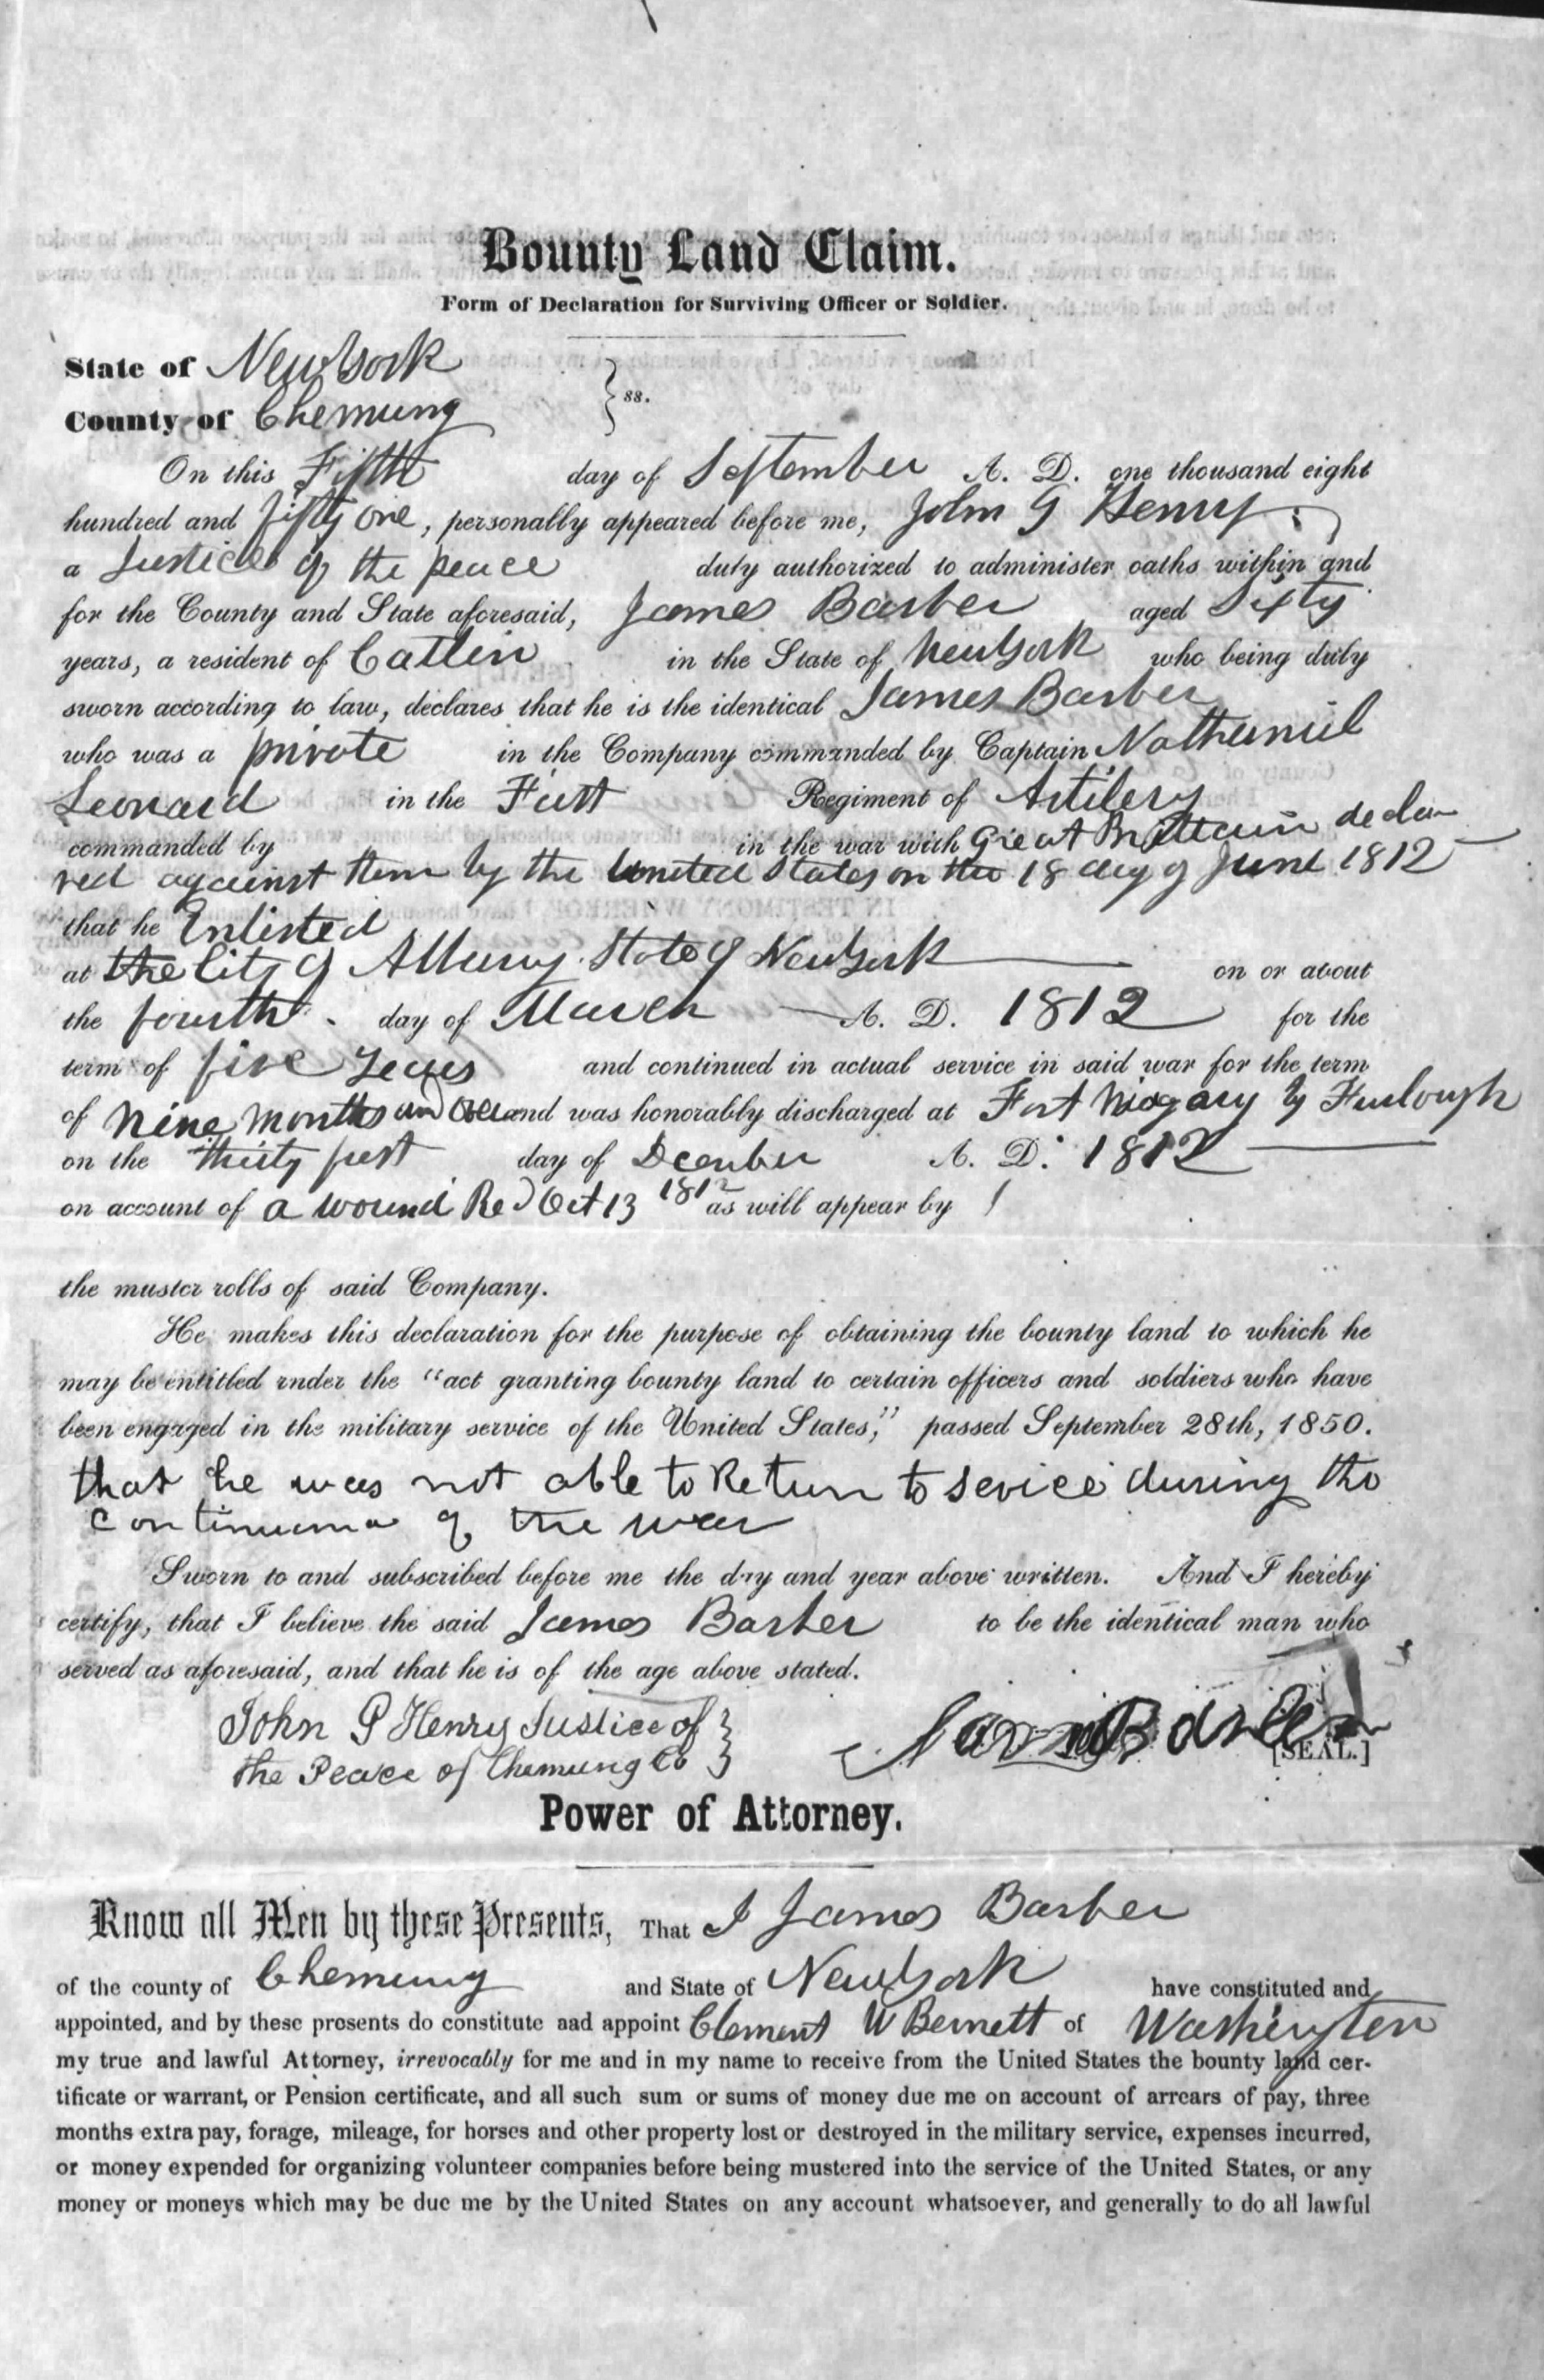 Bounty Land Claim.
Form of Declaration for Surviving Officer or Soldier.
State of New York
County of Chemung } ss.
On this Fifth day of September A. D. one thousand eight
hundred and fifty one, personally appeared before me, John G Henry
a Justice of the peace duly authorized to administer oaths within and
for the County and State aforesaid, James Barber aged Sixty
years, a resident of Catlin in the State of New York who being duly
sworn according to law, declares that he is the identical James Barber
who was a private in the Company commanded by Captain Nathaniel
Leonard in the First Regiment of Artilery
commanded by in the war with Great Brittain decla
red against them by the United States on the 18 day of June 1812
that he Enlisted
at the City of Albany State of New York on or about
the fourth day of March A. D. 1812 for the
term of five Years and continued in actual service in said war for the term
of Nine Months and over and was honorably discharged at Fort Niagary by Furlough
on the thirty first day of Dcember A. D. 1812
on account of a wound Re'd Oct 13 1812 as will appear by
the muster rolls of said Company.
He makes this declaration for the purpose of obtaining the bounty land to which he
may be entitled under the "act granting bounty land to certain officers and soldiers who have
been engaged in the military service of the United States," passed September 28th, 1850.
that he was not able to Return to sevice during the
continuance of the war
Sworn to and subscribed before me the day and year above written. And I hereby
certify, that I believe the said James Barber to be the identical man who
served as aforesaid, and that he is of the age above stated.
John G Henry Justice of }
the Peace of Chemung Co } James Barber [SEAL.]
Power of Attorney.
Know all Men by these Presents, That I James Barber
of the county of Chemung and State of New York have constituted and
appointed, and by these presents do constitute aad appoint Clement W Bennett of Washington
my true and lawful Attorney, irrevocably for me and in my name to receive from the United States the bounty land cer-
tificate or warrant, or Pension certificate, and all such sum or sums of money due me on account of arrears of pay, three
months extra pay, forage, mileage, for horses and other property lost or destroyed in the military service, expenses incurred,
or money expended for organizing volunteer companies before being mustered into the service of the United States, or any
money or moneys which may be due me by the United States on any account whatsoever, and generally to do all lawful